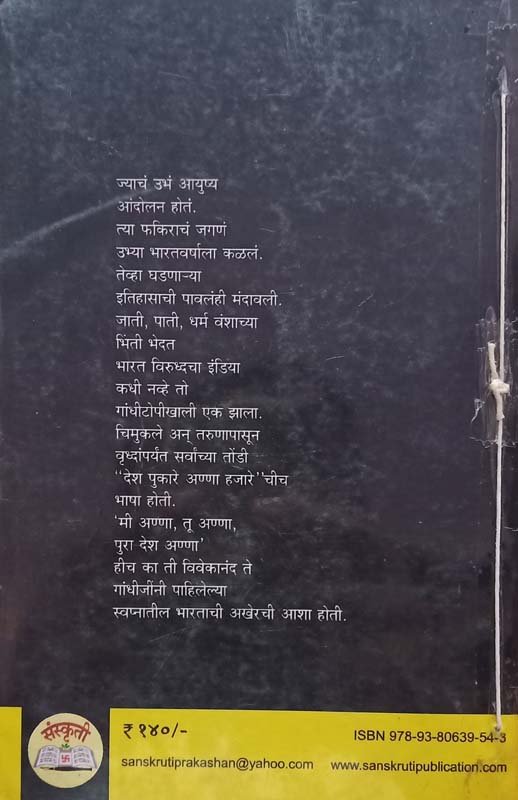 ज्याचं उभं आयुष्य
आंदोलन होतं.
त्या फकिराचं जगणं
उभ्या भारतवर्षाला कळलं.
तेव्हा घडणाऱ्या
इतिहासाची पावलंही मंदावली.
जाती, पाती, धर्म वंशाच्या
भिंती भेदत
भारत विरुध्दचा इंडिया
कधी नव्हे तो
गांधीटोपीखाली एक झाला.
चिमुकले अन् तरुणापासून
वृध्दांपर्यंत सर्वाच्या तोंडी
"देश पुकारे अण्णा हजारे"चीच
भाषा होती.
'मी अण्णा, तू अण्णा,
पुरा देश अण्णा'
हीच का ती विवेकानंद ते
गांधीजींनी पाहिलेल्या
स्वप्नातील भारताची अखेरची आशा होती.
संस्कृती
₹ १४०/-
ISBN 978-93-80639-54-3
sanskrutiprakashan@yahoo.com www.sanskrutipublication.com